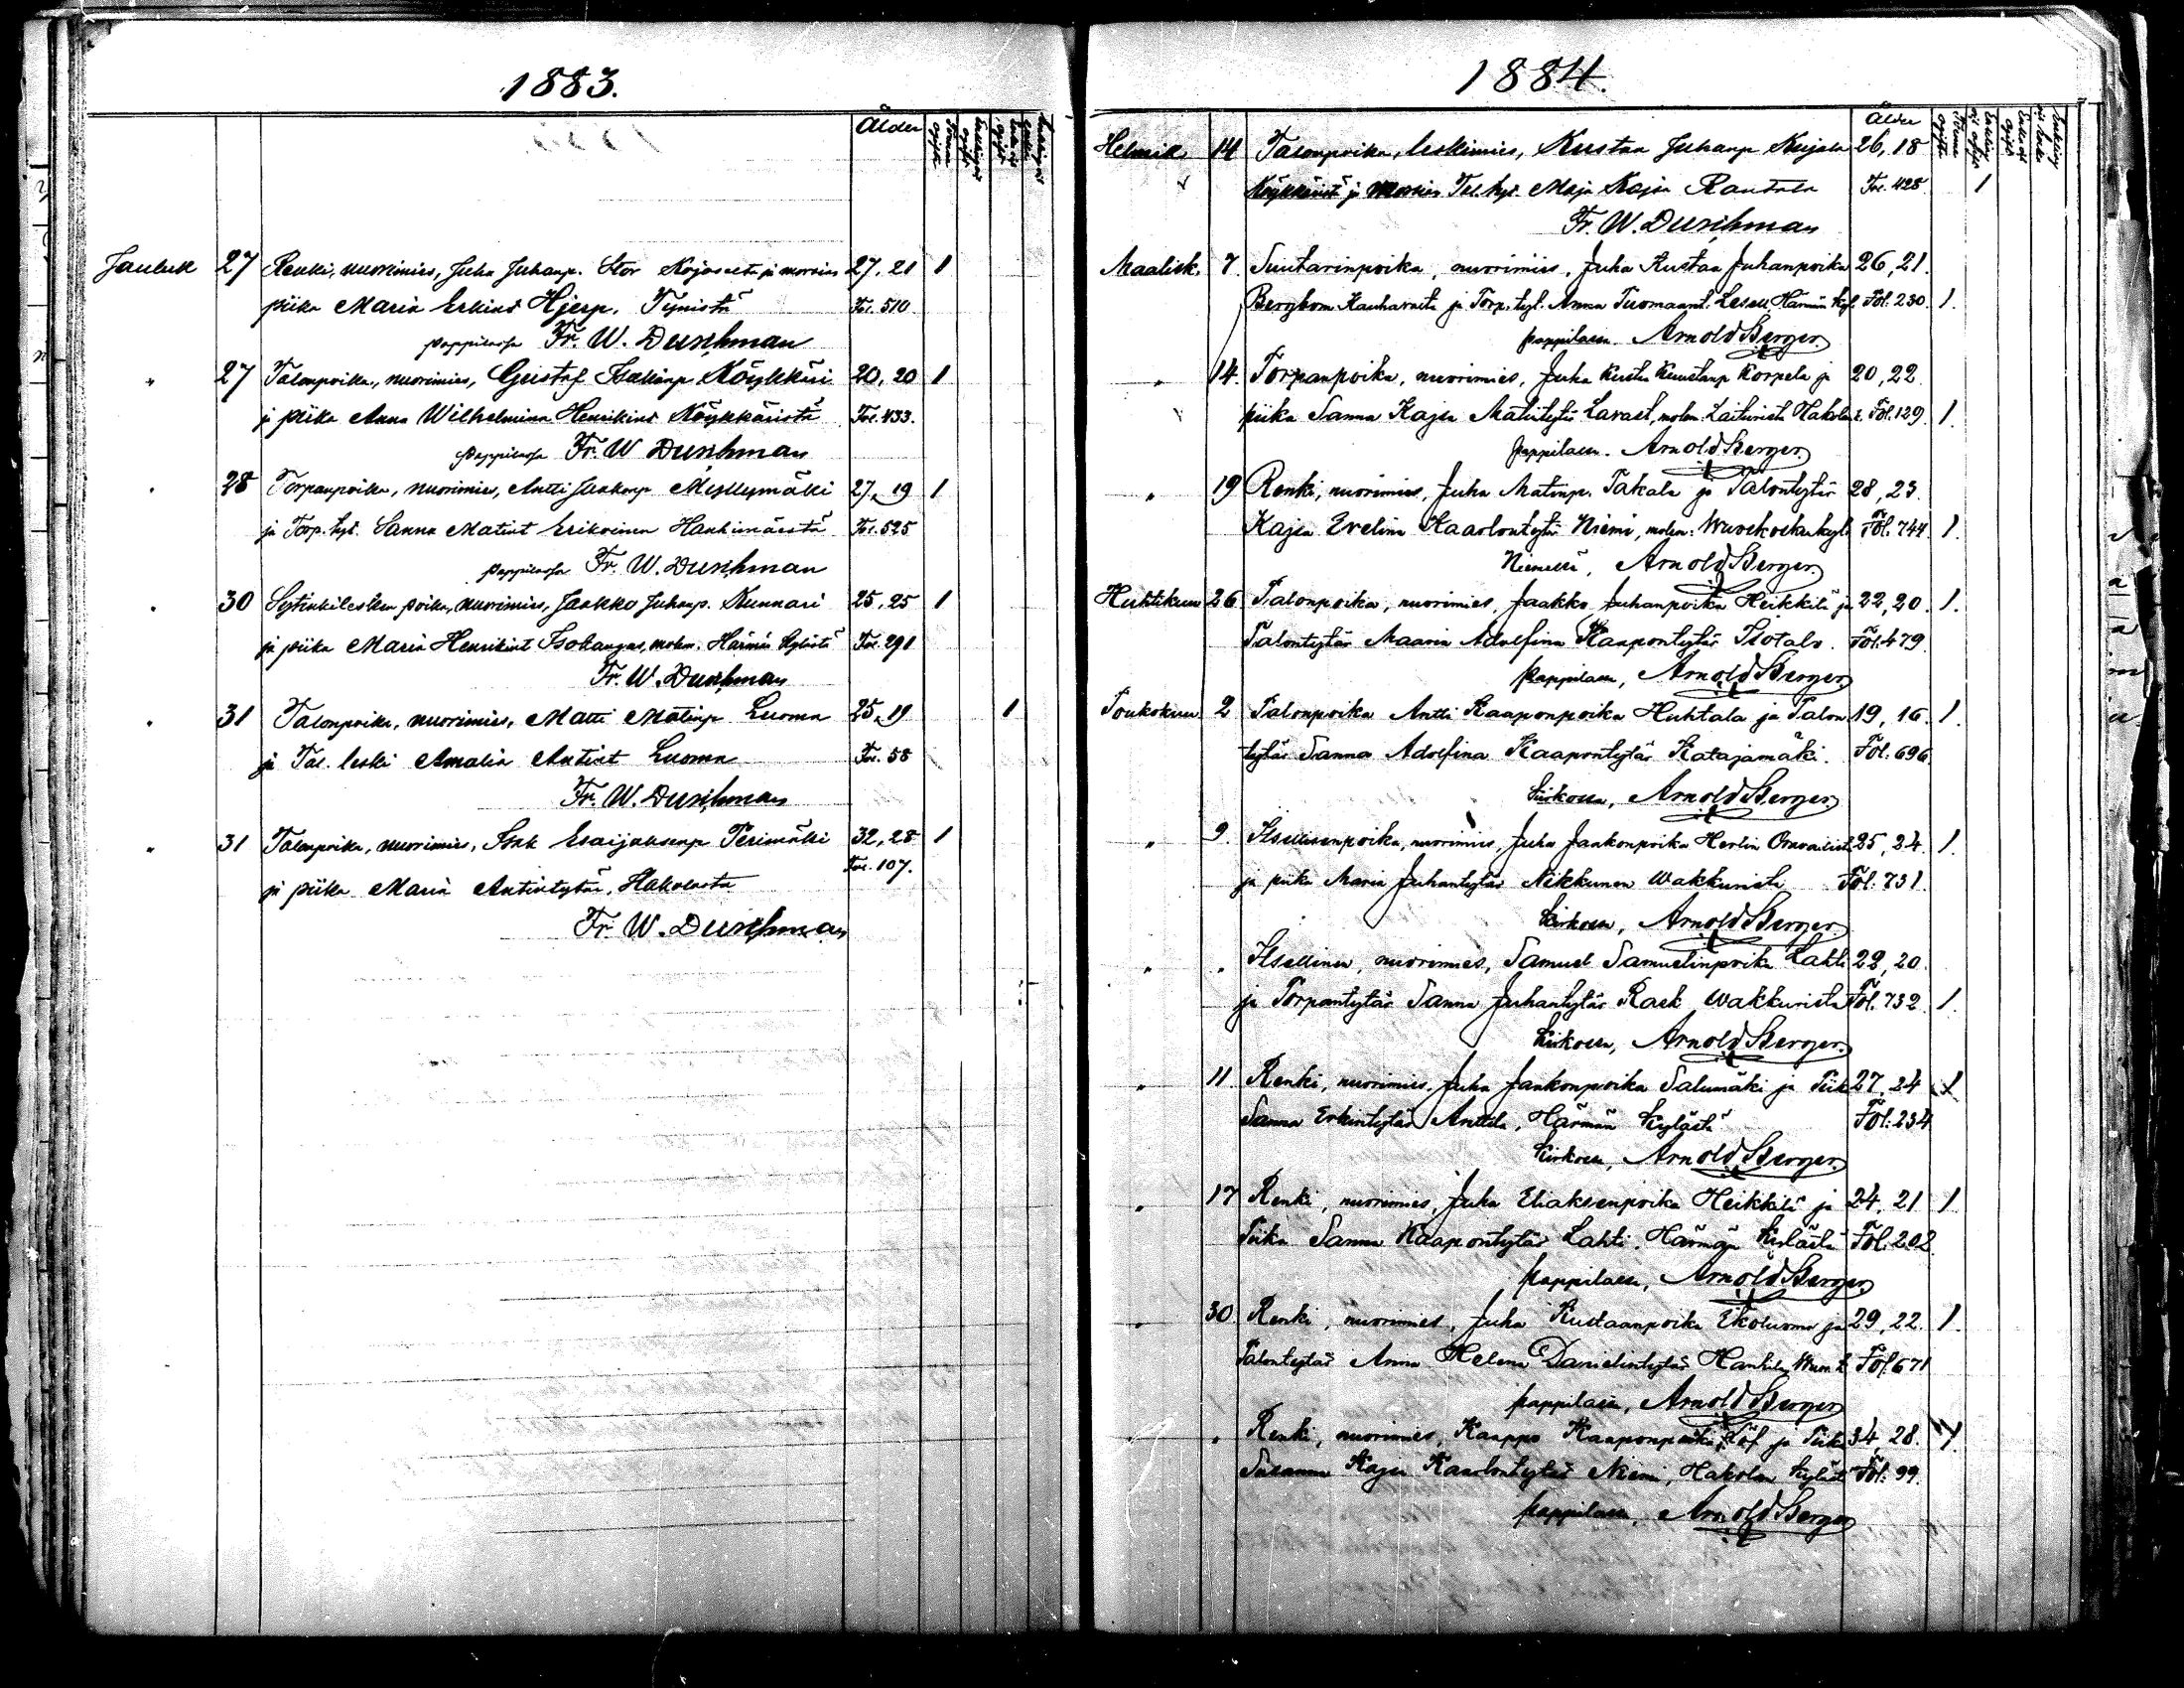 1883.
Ålder
Jouluk 27 Renki, nuorimies, Juha Juhanp. Stor Kojosesta ja morsian 27, 21 1
piika Maria Erkint Hjerp, Tynistä Fol. 510
pappilassa Fr. W. Durchman
" 27 Talonpoika, nuorimies, Gustaf Isakinp Köykkäri 20, 20 1
ja piika Anna Wilhelmina Henrikint Köykkäristä Fol. 433.
pappilassa Fr. W Durchman
" 28 Torpanpoika, nuorimies, Antti Jaakonp Myllymäki 27, 19 1
ja Torp. tyt. Sanna Matint Erikoinen Hanhimäestä Fol. 525
pappilassa Fr. W. Durchman
" 30 poika, nuorimies, Jaakko Juhanp. Kunnari 25, 25 1
ja piika Maria Henrikint Isokangas, molem. Härmän kylästä Fol. 291
Fr. W. Durchman
" 31 Talonpoika, nuorimies, Matti Matinp Luoma 25, 19 1
ja Tal. leski Amalia Antint Luoma Fol. 58
Fr. W. Durchman
" 31 Talonpoika, nuorimies, Isak Esaijaksenp Perimäki 32, 28 1
ja piika Maria Antintytär, Hakolasta Fol. 107.
Fr. W. Durchman
1884.
Ålder
Helmik. 14 Talonpoika, leskimies, Kustaa Juhanp Kujala 26, 18
Köykkäristä ja morsian Tal. tyt. Maja Kajsa Rantala Fol. 428 1
Fr. W. Durchman
Maalisk. 7. Suutarinpoika, nuorimies, Juha Kustaa Juhanpoika 26, 21.
Bergbom Kauhavalta ja Torp. tyt. Anna Tuomaant. Lesell, Härmän kyl. Fol. 230. 1.
pappilassa. Arnold Berger.
" 14. Torpanpoika, nuorimies, Juha Kusta Kustanp Korpela ja 20, 22
piika Sanna Kajsa Matintytär Lavast, molem. Hakolan k. Fol. 129 1.
pappilassa. Arnold Berger.
" 19 Renki, nuorimies, Juha Matinp. Takala ja Talontytär 28, 23.
Kajsa Evelina Kaarlontytär Niemi, molem: Wuoskosken kyl. Fol. 744 1.
Niemellä, Arnold Berger.
Huhtikuu 26 Talonpoika, nuorimies, Jaakko Juhanpoika Heikkilä ja 22, 20. 1.
Talontytär Maaria Adolfina Kaapontytär Isotalo. Fol. 479
pappilassa, Arnold Berger.
Toukokuu 2 Talonpoika Antti Kaaponpoika Huhtala ja Talon 19, 16. 1.
tytär Sanna Adolfina Kaapontytär Katajamäki. Fol. 696
kirkossa, Arnold Berger
" 9. Itsellisenpoika, nuorimies, Juha Jaakonpoika Herlin Oravaisist 25, 24. 1.
ja piika Maria Juhantytär Nikkunen Wakkurista Fol. 731.
kirkossa, Arnold Berger.
" " Itsellinen, nuorimies, Samuel Samuelinpoika Lahti 22, 20.
ja Torpantytär Sanna Juhantytär Rask Wakkurista Fol. 732 1.
kirkossa, Arnold Berger.
" 11. Renki, nuorimies, Juha Jaakonpoika Salumäki ja Piika 27, 24 1
Sanna Erkintytär Anttila, Härmän kylästä Fol. 234
kirkossa, Arnold Berger.
" 17 Renki, nuorimies, Juha Eliaksenpoika Heikkilä ja 24, 21 1
Piika Sanna Kaapontytär Lahti, Härmän kylästä Fol. 202
pappilassa, Arnold Berger
" 30. Renki, nuorimies, Juha Kustaanpoika Ekoluoma ja 29, 22. 1.
Talontytär Anna Helena Danielintytär Fol. 671
pappilassa, Arnold Berger
" " Renki, nuorimies, Kaappo Kaaponpoika Löf ja Piika 34, 28. 1
Susanna Kajsa Kaarlontytär Niemi, Hakolan kyläst Fol. 99.
pappilassa, Arnold Berger